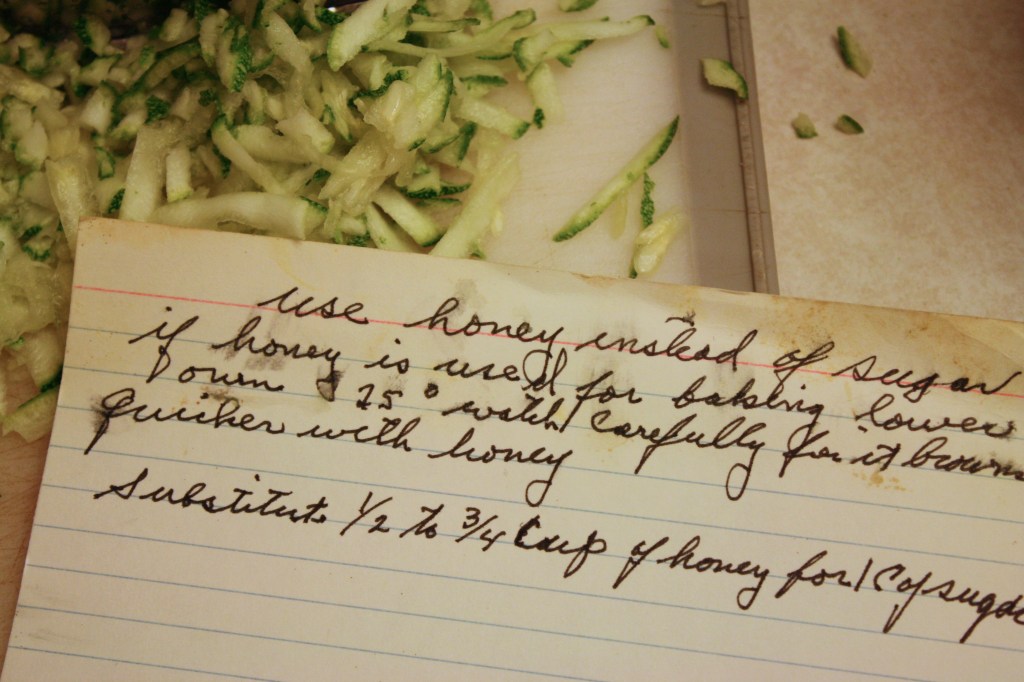 use honey instead of sugar
if honey is used for baking lower
down 25° watch carefully for it browns
quicker with honey
Substitute 1/2 to 3/4 Cup of honey for 1 C of sugar